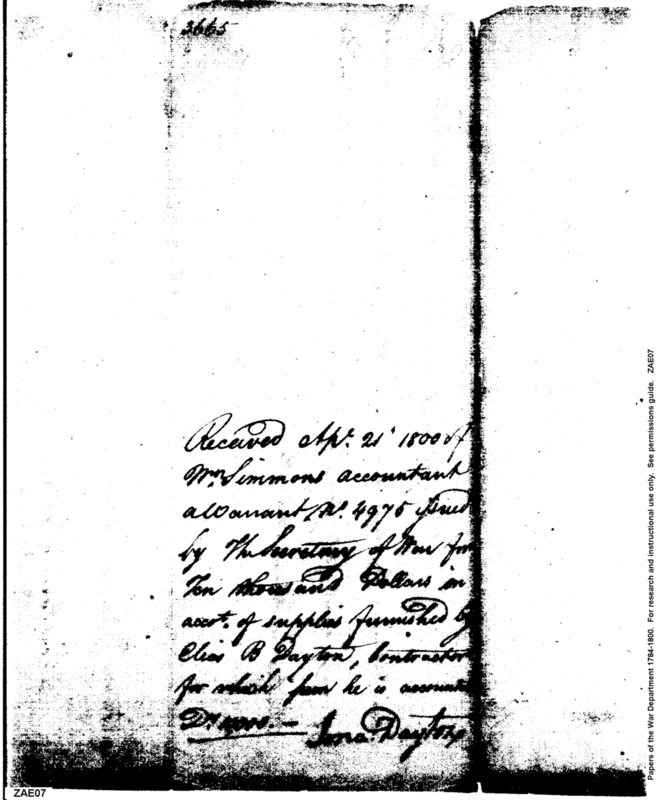 3665
Received Apr. 21st 1800 of
Wm Simmons accountant
a Warrant No. 4975 issued
by The Secretary of War for
Ten thousand Dollars on
acct. of supplies furnished by
Elias B Dayton, Contractor
for which sum he is account
Drs 10000.—
Jona: Dayton
ZAE07
Papers of the War Department 1784-1800. For research and instructional use only. See permissions guide. ZAE07